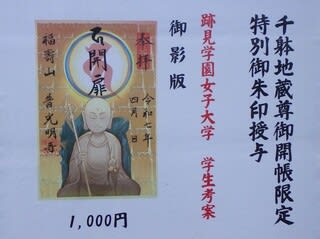 千躰地蔵尊御開帳限定
特別御朱印授与
跡見学園女子大学 学生考案
御影版
奉拝
令和七年
四月 日
御開扉
福壽山 普光明寺
1,000円